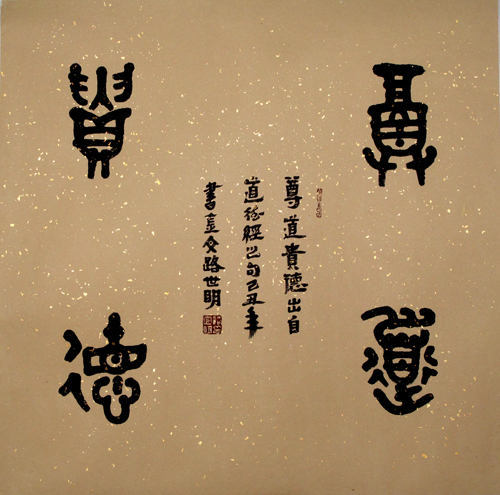 尊
道
貴
德
尊道貴德出自
道德經之句己丑年
書文路世明